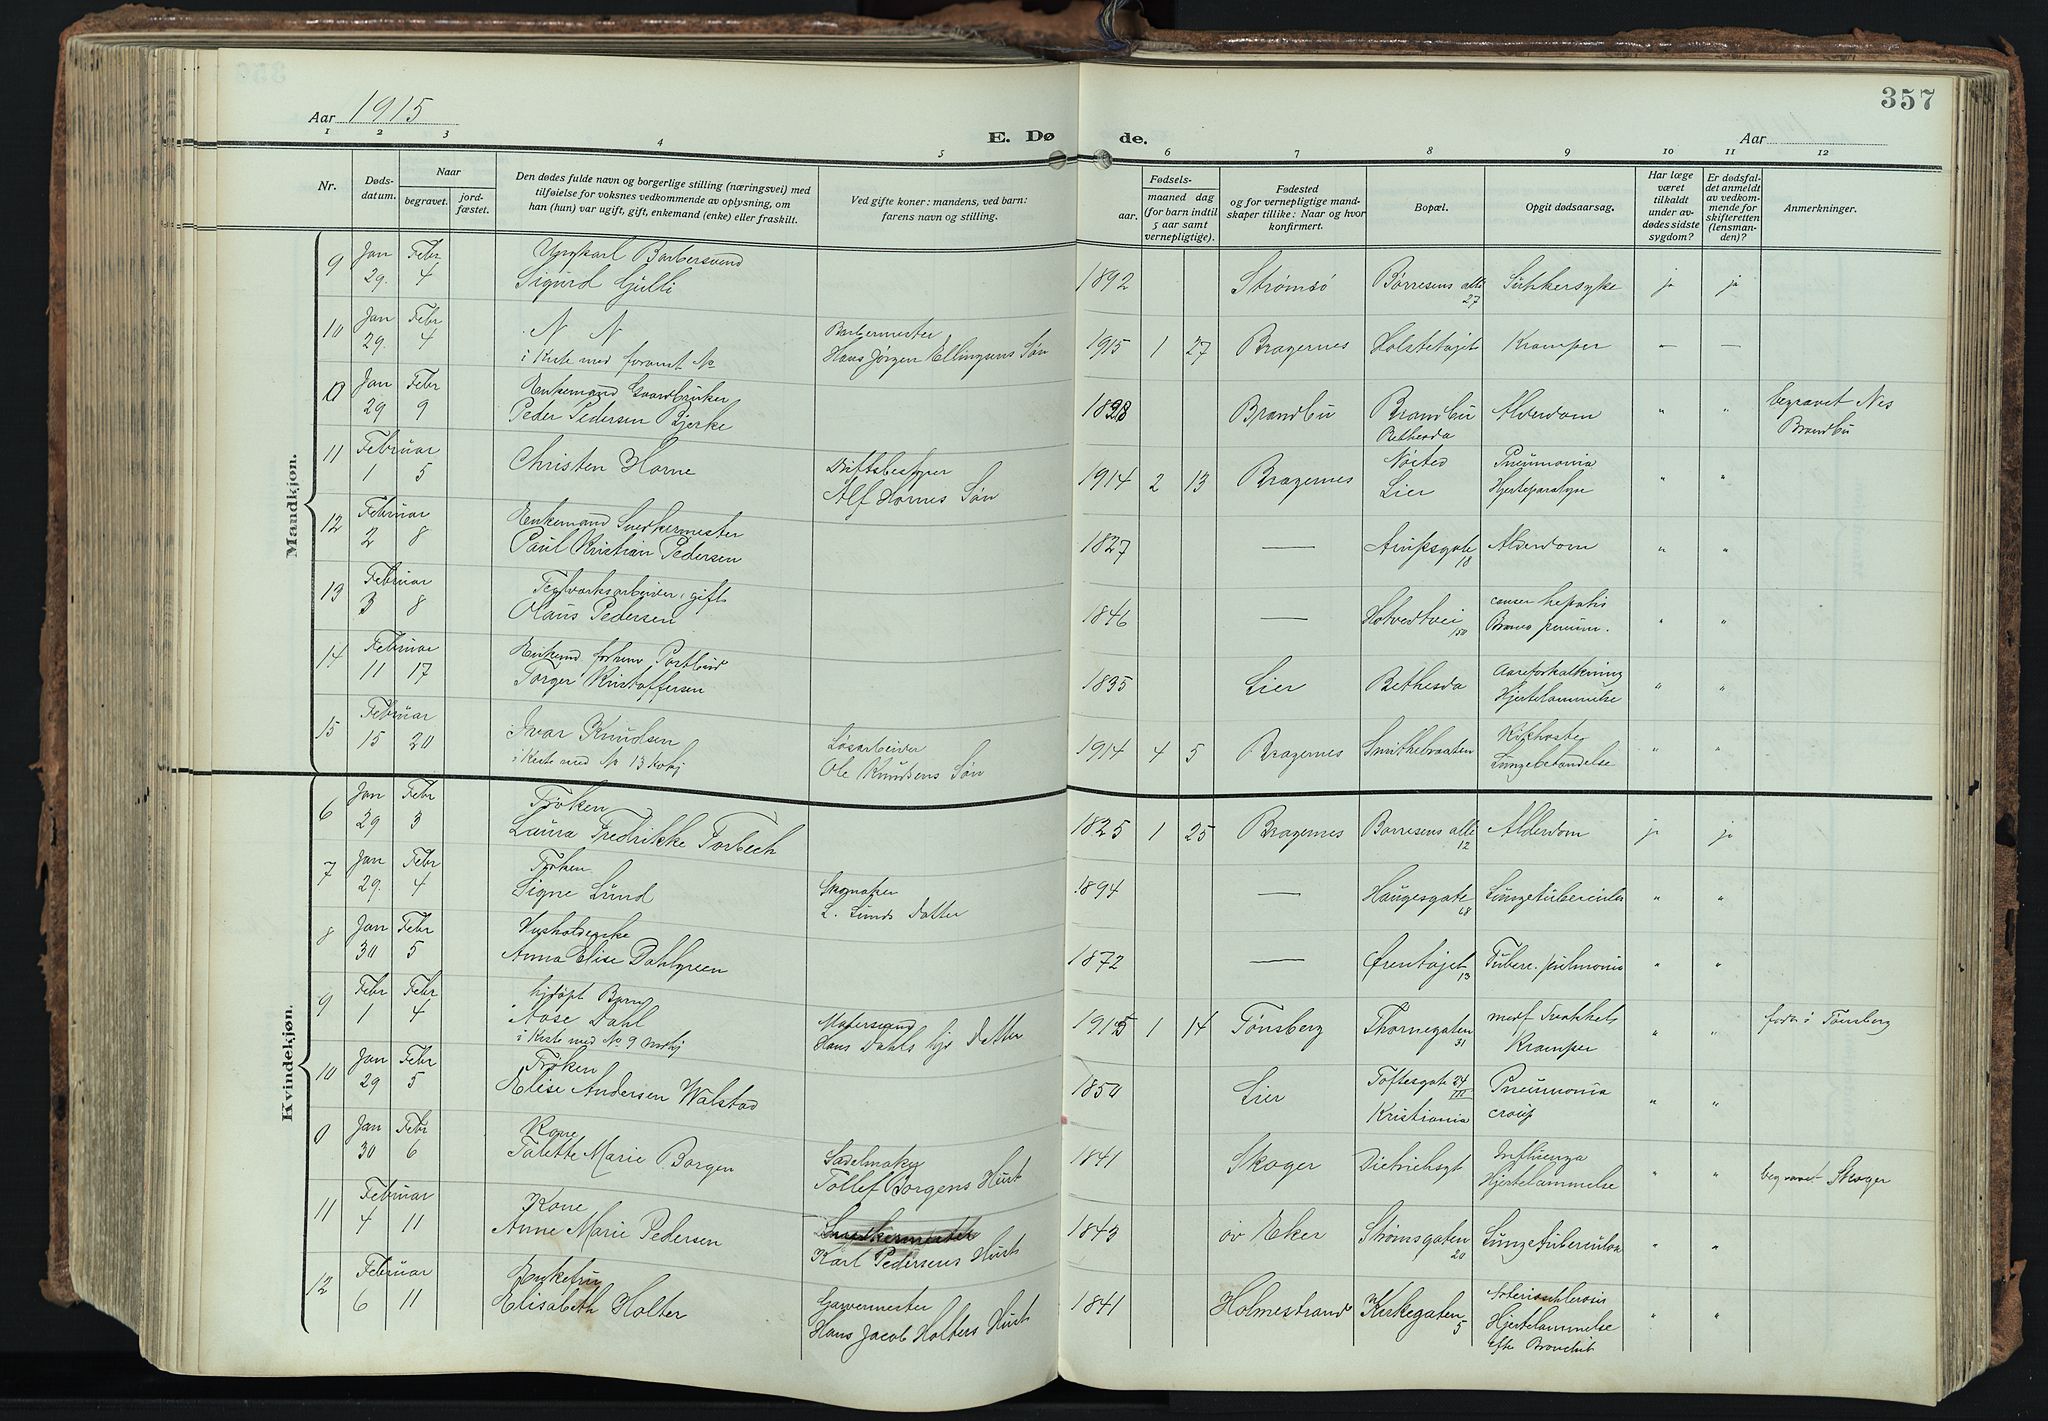 357
Aar 1915
E. Dø de.
Aar
1 2 3 4 5 6 7 8 9 10 11 12
Nr.
Døds-
datum.
Naar
begravet.
jord-
fæstet.
Den dødes fulde navn og borgerlige stilling (næringsvei) med
tilføielse for voksnes vedkommende av oplysning, om
han (hun) var ugift, gift, enkemand (enke) eller fraskilt.
Ved gifte koner: mandens, ved barn:
farens navn og stilling.
Fødsels-
aar. maaned dag
(for barn indtil
5 aar samt
vernepligtige).
Fødested
og for vernepligtige mand-
skaper tillike: Naar og hvor
konfirmert.
Bopæl.
Opgit dødsaarsag.
Har læge
været
tilkaldt
under av-
dødes sidste
sygdom?
Er dødsfal-
det anmeldt
av vedkom-
mende for
skifteretten
(lensman-
den)?
Anmerkninger.
Mandkjøn.
9 Jan Febr Ungkarl Barbersvend
29. 4 Sigurd Gulli 1892 Strømsø Børresens alle Sukkersyke ja ja
27
10 Jan Febr N N Barbermester
29. 4 i Kiste med foramt No Hans Jørgen Ellingsens Søn 1915 1 27 Bragernes Holstetøjet Kramper — —
0 Jan Febr Enkemand Gaardbruker
29 9 Peder Pedersen Bjerke 1828 Brandbu Brandbu Alderdom " " begravet Nes
Bethesda Brandbu
11 Februar Christen Horne Driftsbestyrer Nøsted Pneumonia
1 5 Alf Hornes Søn 1914 2 13 Bragernes Lier Hjerteparalyse " "
12 Februar Enkemand Snedkermester
2 8 Paul Kristian Pedersen 1827 — Amtsgate Alderdom " "
18
13 Februar Teglverksarbeider, gift canser hepatis
3 8 Olaus Pedersen 1846 — Hotvedtvei pneum. " "
150
14 Februar Enkemd forhenv Postbud Aareforkalkning
11 17 Torger Kristoffersen 1835 Lier Bethesda Hjertelammelse " "
15 Februar Ivar Knudsen Løsarbeider Kikhoste
15 20 i Kiste med No 13 Ole Knudsens Søn 1914 4 5 Bragernes Smithebraaten Lungebetændelse " "
Kvindekjøn.
6 Jan Febr Frøken
29 3 Laura Fredrikke Torbech 1825 1 25 Bragernes Børresens alle Alderdom ja ja
12
7 Jan Febr Frøken Skomaker
29. 4 Signe Lund L. Lunds Datter 1894 — Haugesgate Lungetuberculos " "
68
8 Jan Febr Husholderske
30 5 Anna Elise Dahlgreen 1872 — Ørentøjet Tuberc. pulmonis " "
13
9 Febr Febr hjdøpt Barn
1 4 Aase Dahl Matersvend 1915 1 14 Tønsberg Thornegaten medf Svakhet " " født i Tønsberg
i Kiste med No 9 Hans Dahls Datter 31 Kramper
10 Jan Febr Frøken Toftesgate 24 Pneumonia
29 5 Elise Andersen Walstad 1850 Lier III croup " "
Kristiania
0 Jan Febr Kone Sadelmaker Influenza
30 6 Talette Marie Borgen Tollef Borgens Hust 1841 Skoger Dietrichsgt Hjertelammelse " " begravet Skoger
11 Februar Kone Snedkermester
4 11 Anne Marie Pedersen Karl Pedersens Hust 1843 øv Eker Strømsgaten Lungetuberculose " "
20
12 Februar Enkefru Garvermester Arteriosclerosis
6 11 Elisabeth Holter Hans Jacob Holters Hust 1841 Holmestrand Kirkegaten Hjertelammelse " "
5 efter Bronchit